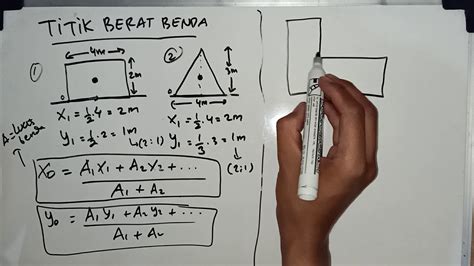 TITIK BERAT BENDA
1
4m
2m
2
3m
4m
0
0
X₁ = ½ . 4 = 2m
Y₁ = ½ . 2 = 1m
X₁ = ½ . 4 = 2m
Y₁ = ⅓ . 3 = 1m
(2:1)
(2:1)
A = Luas
benda
X₀ = A₁X₁ + A₂X₂ + ...
A₁ + A₂
Y₀ = A₁Y₁ + A₂Y₂ + ...
A₁ + A₂